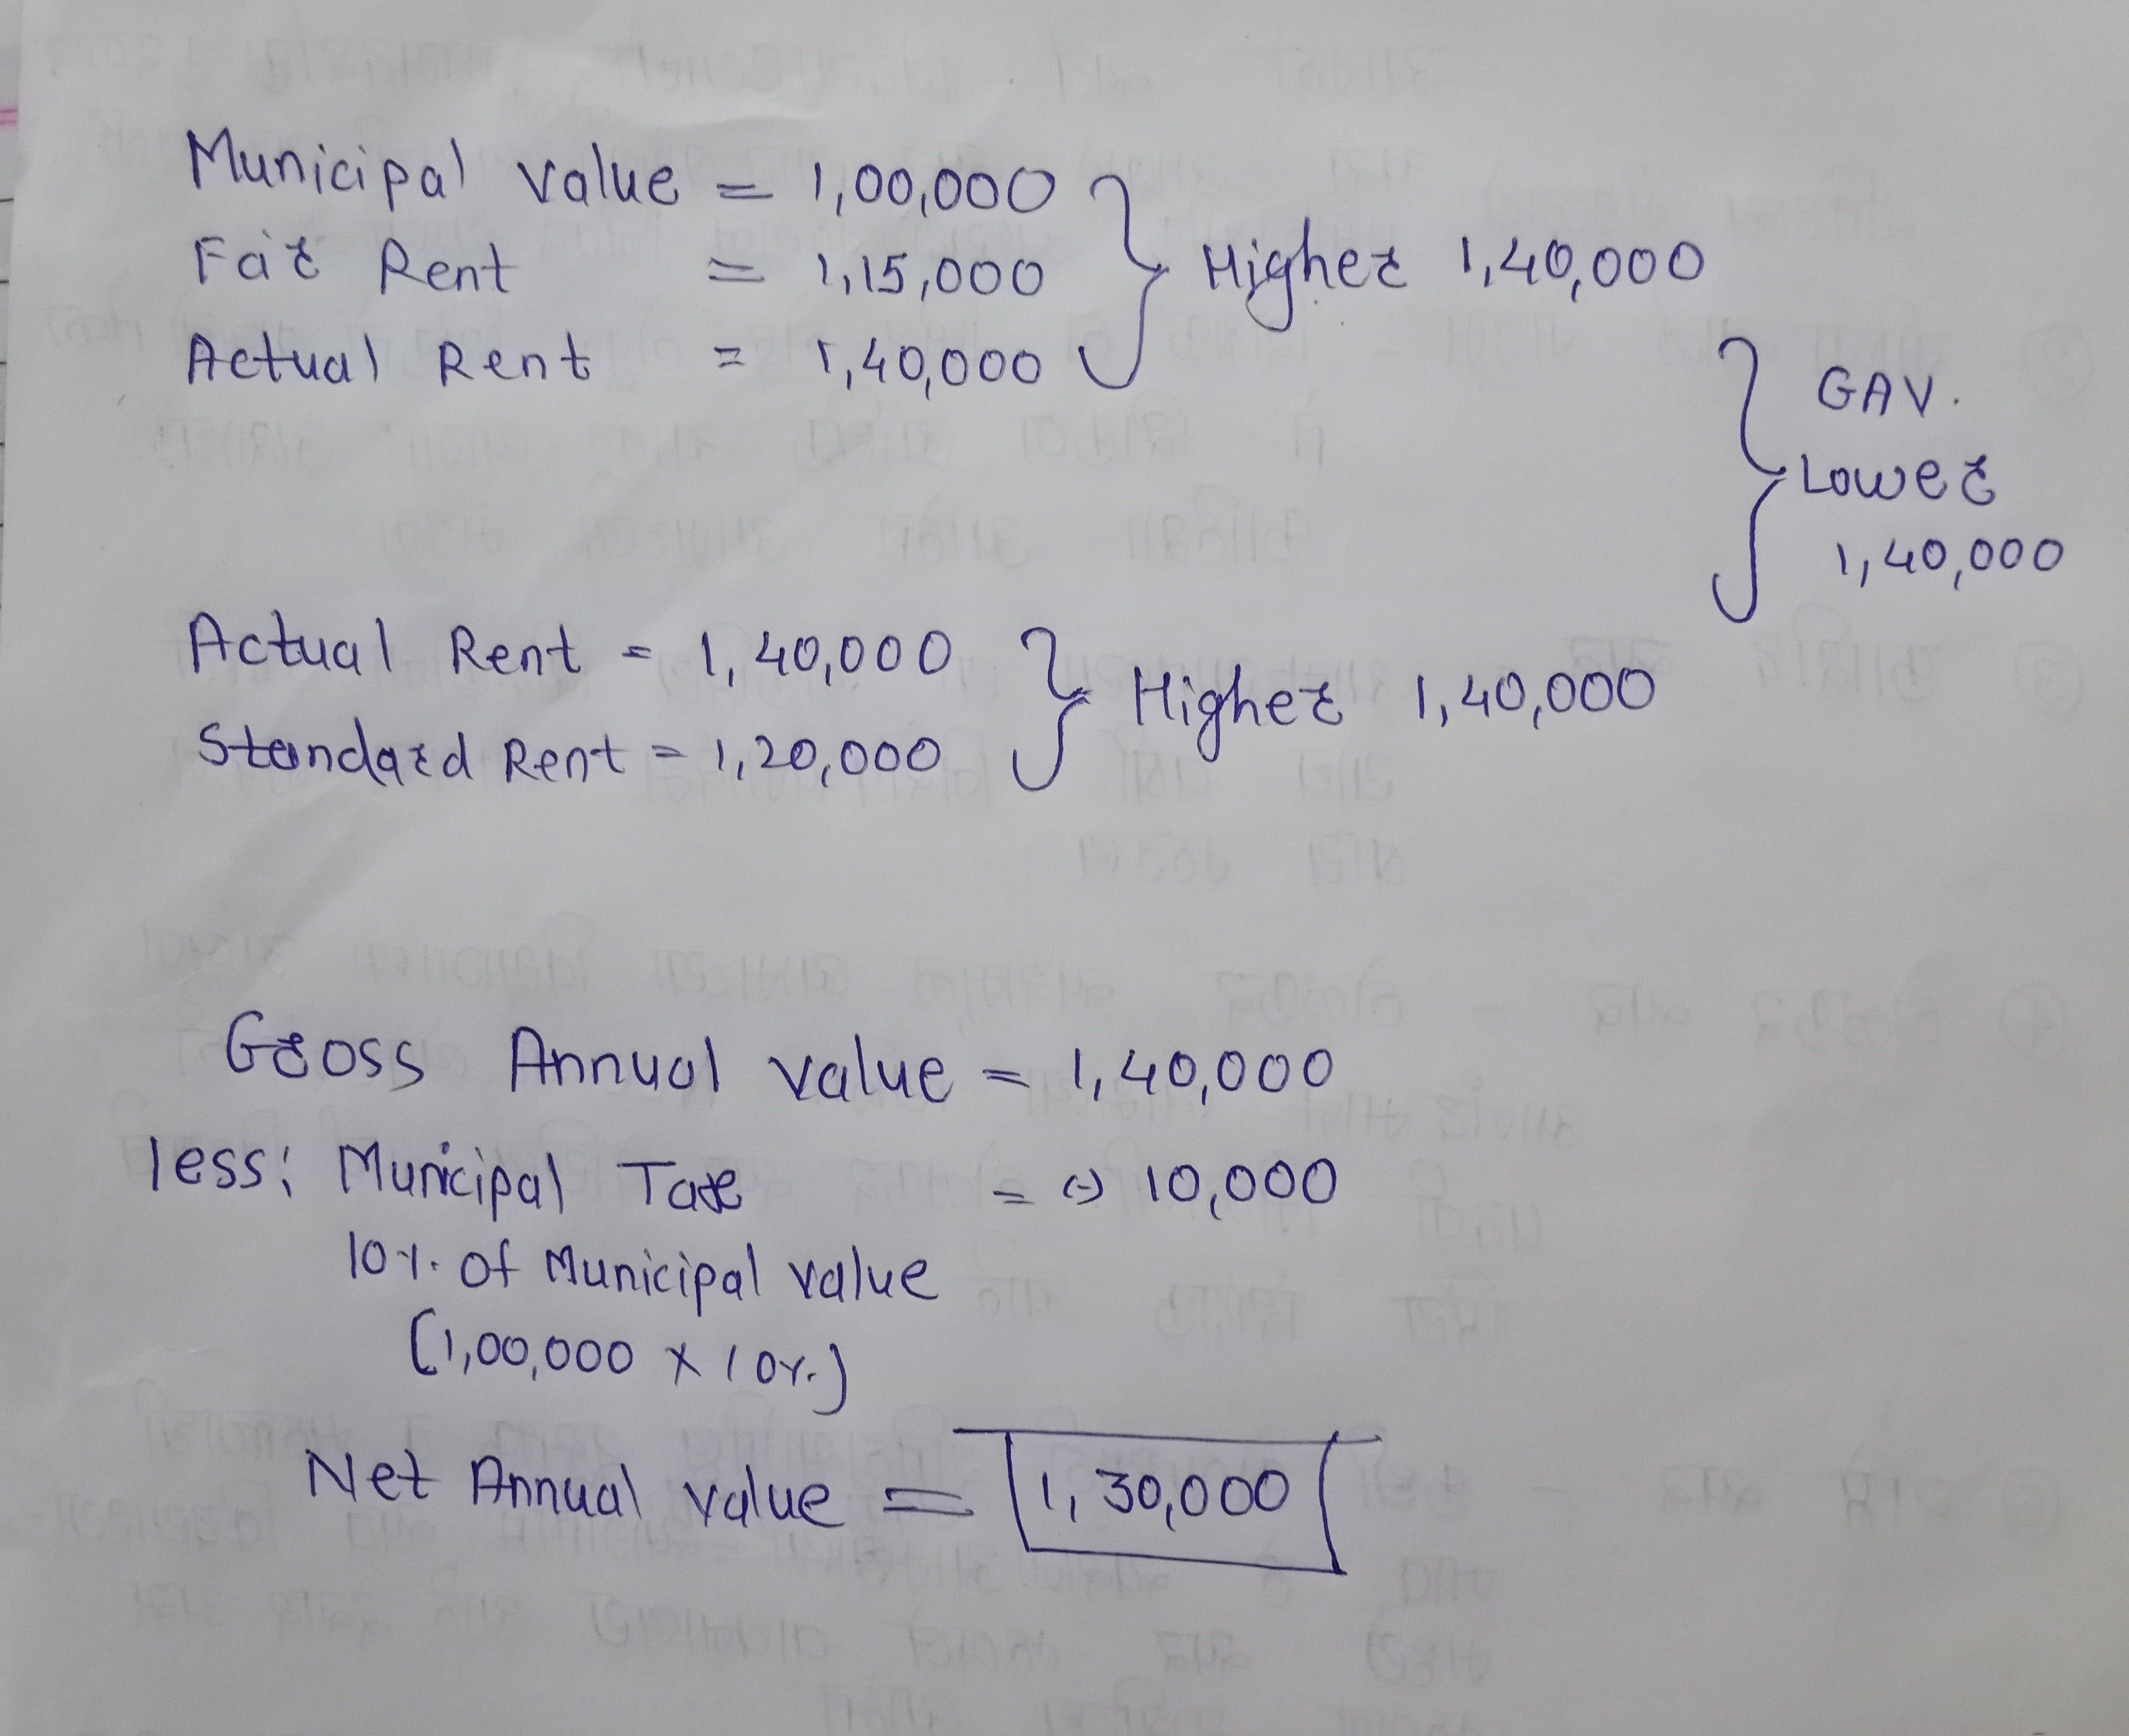 Municipal value = 1,00,000
Fair Rent = 1,15,000
Actual Rent = 1,40,000
Higher 1,40,000
GAV.
Lower
1,40,000
Actual Rent = 1,40,000
Standard Rent = 1,20,000
Higher 1,40,000
Gross Annual value = 1,40,000
less: Municipal Tax = (-) 10,000
10% of Municipal value
(1,00,000 x 10%)
Net Annual value = 1,30,000